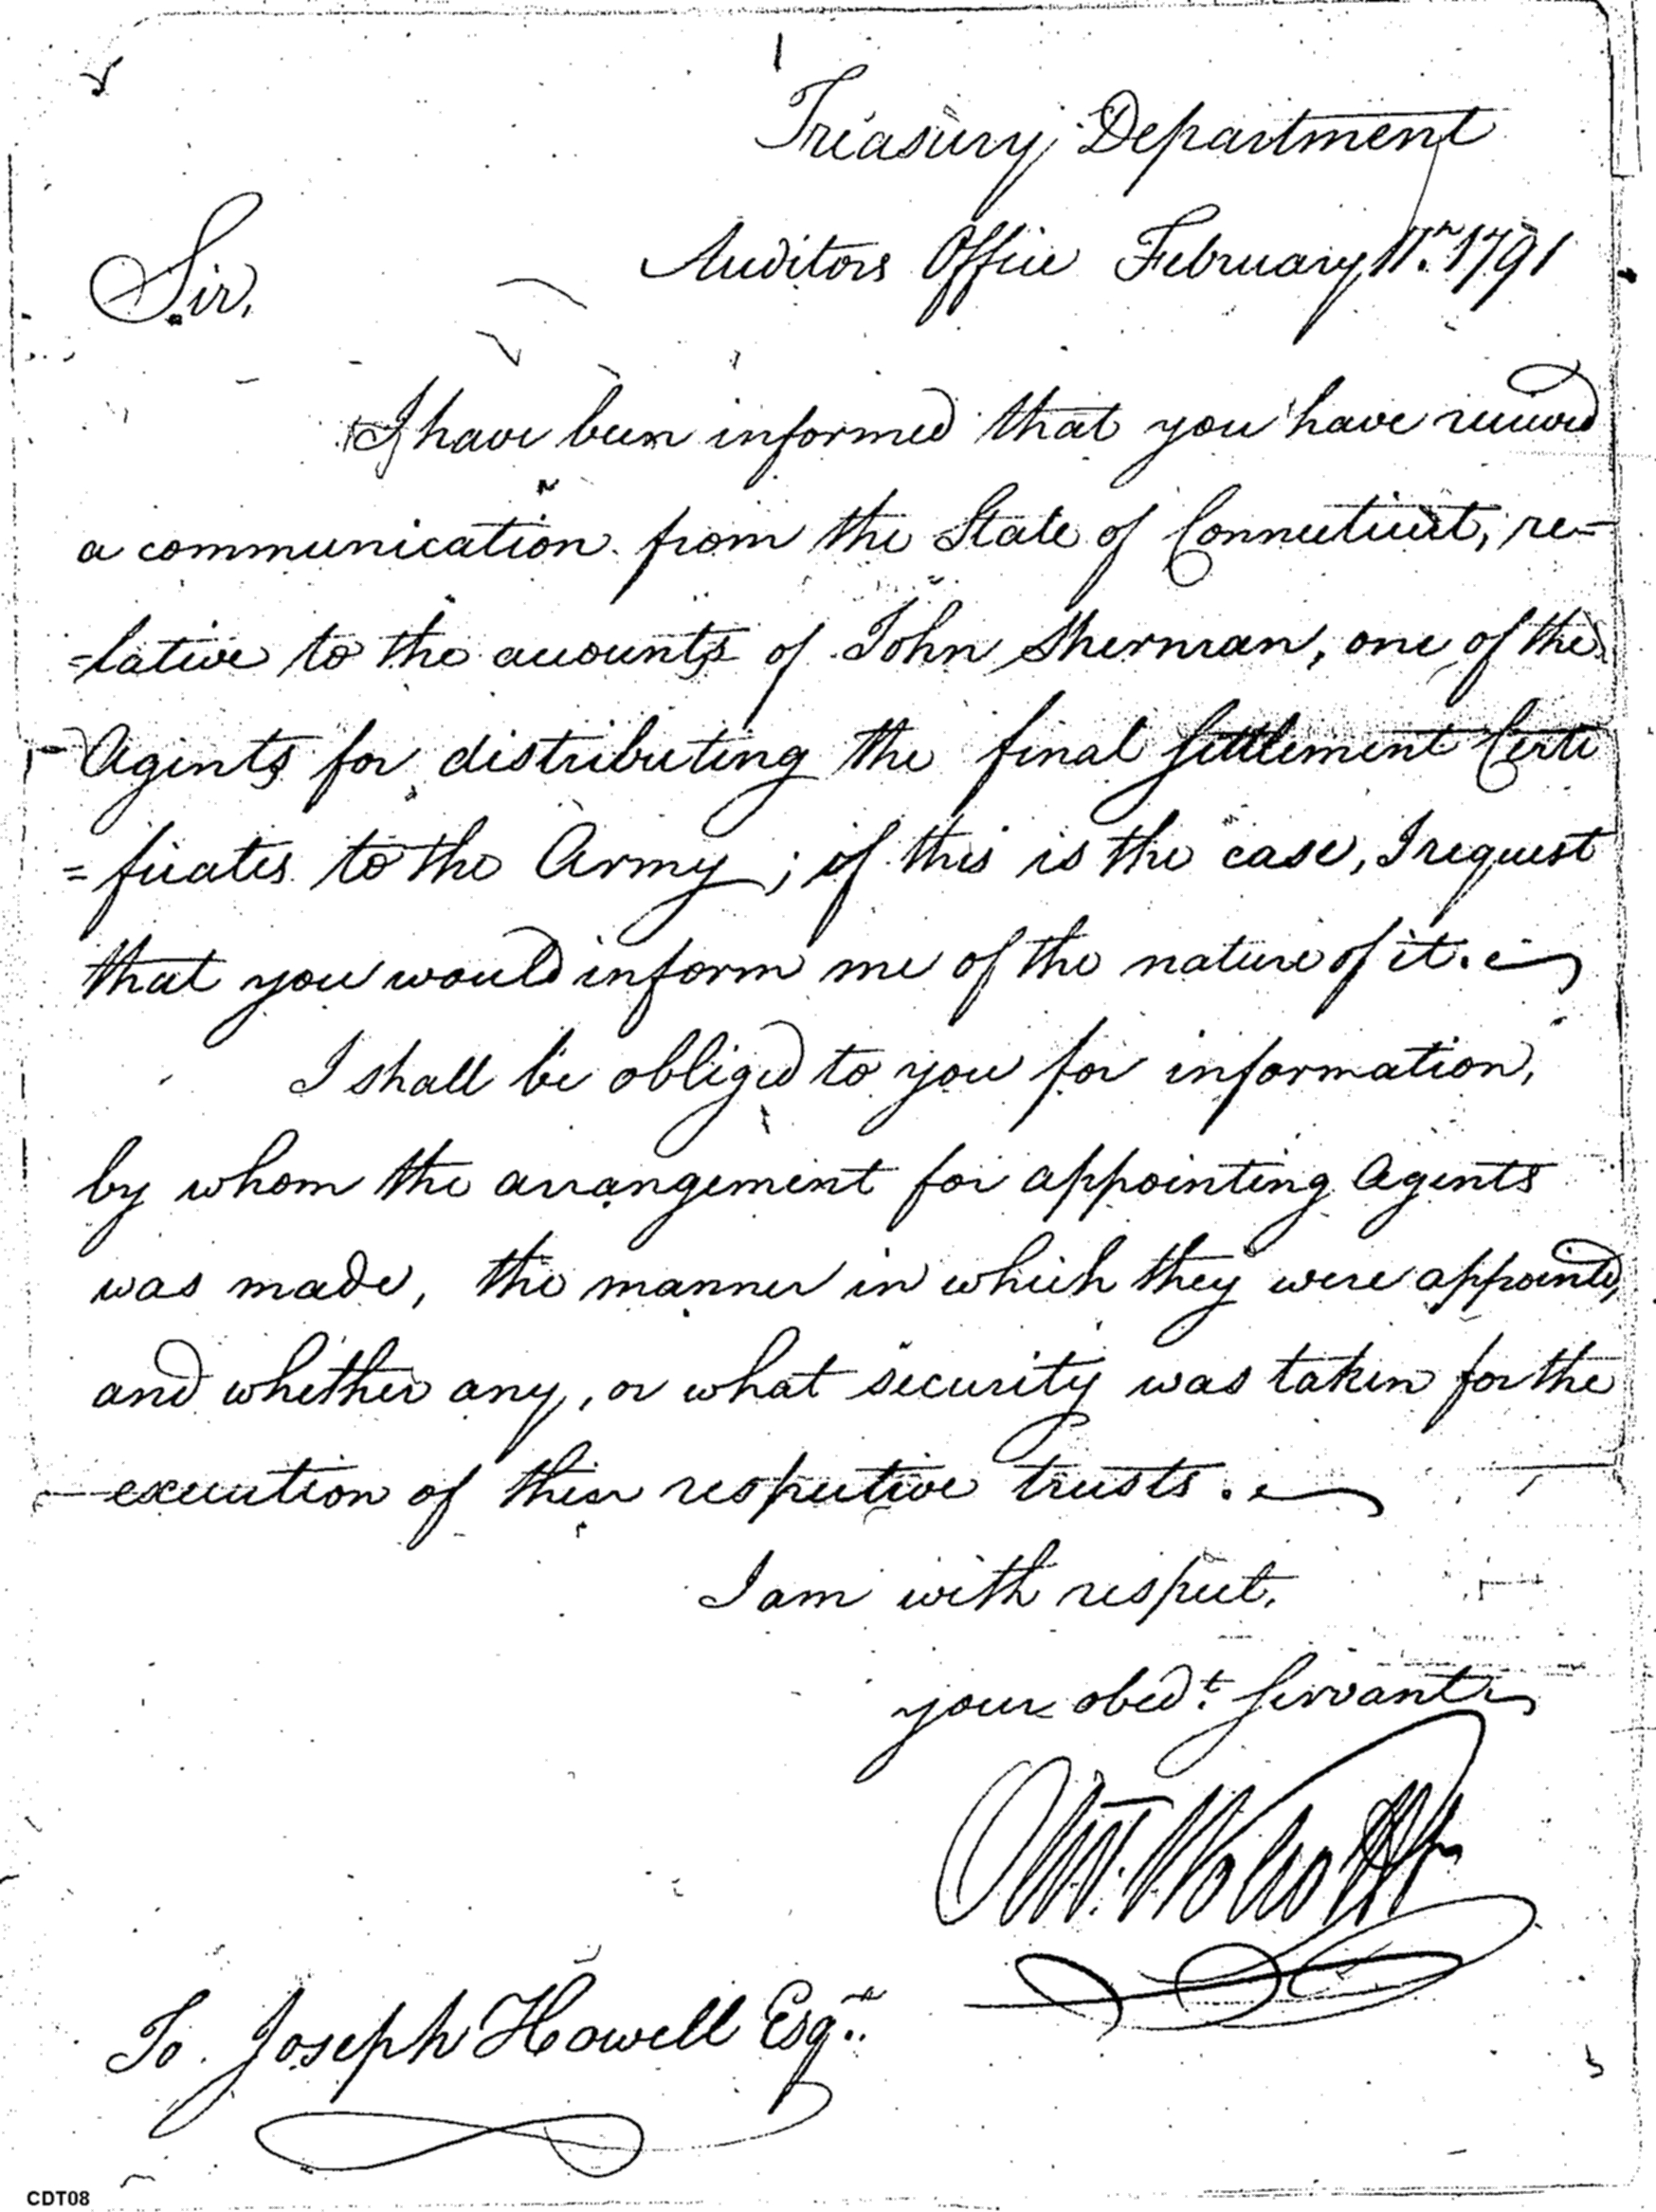 Treasury Department
Auditors Office February 11th. 1791
Sir,
I have been informed that you have received
a communication from the State of Connecticut, re-
-lative to the accounts of John Sherman, one of the
Agents for distributing the final Settlement Certi
=ficates to the Army; if this is the case, I request
that you would inform me of the nature of it.
I shall be obliged to you for information,
by whom the arrangement for appointing Agents
was made, the manner in which they were appointed,
and whether any, or what security was taken for the
execution of their respective trusts.
I am with respect,
your obedt. Servant
Oliv. Wolcott Jr
To Joseph Howell Esqr.
CDT08